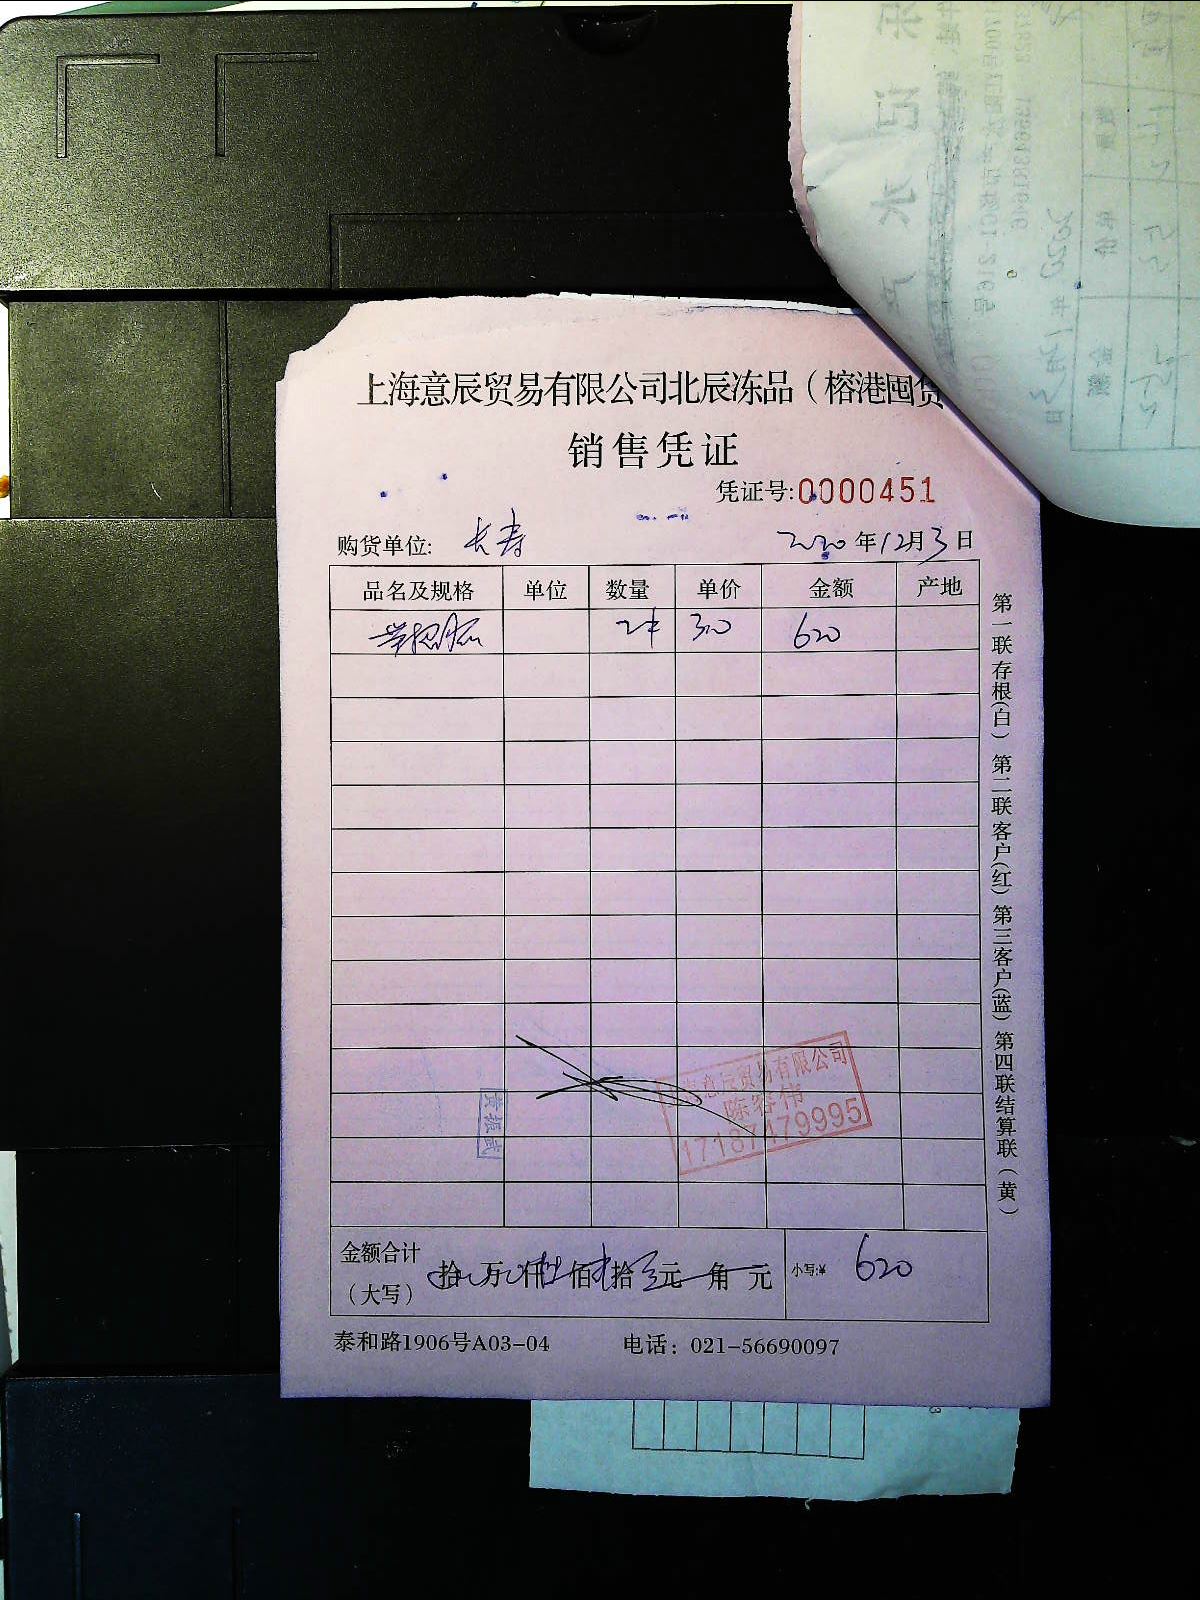 上海意辰贸易有限公司北辰冻品（榕港囤货
销售凭证
凭证号:0000451
购货单位: 长寿 2020年12月3日
品名及规格 单位 数量 单价 金额 产地
2件 310 620
第一联存根(白) 第二联客户(红) 第三客户(蓝) 第四联结算联(黄)
意辰贸易有限公司
陈容伟
17187479995
黄振武
金额合计
（大写） 拾 万 仟 佰 拾 元 角 元 小写:¥ 620
泰和路1906号A03-04 电话：021-56690097